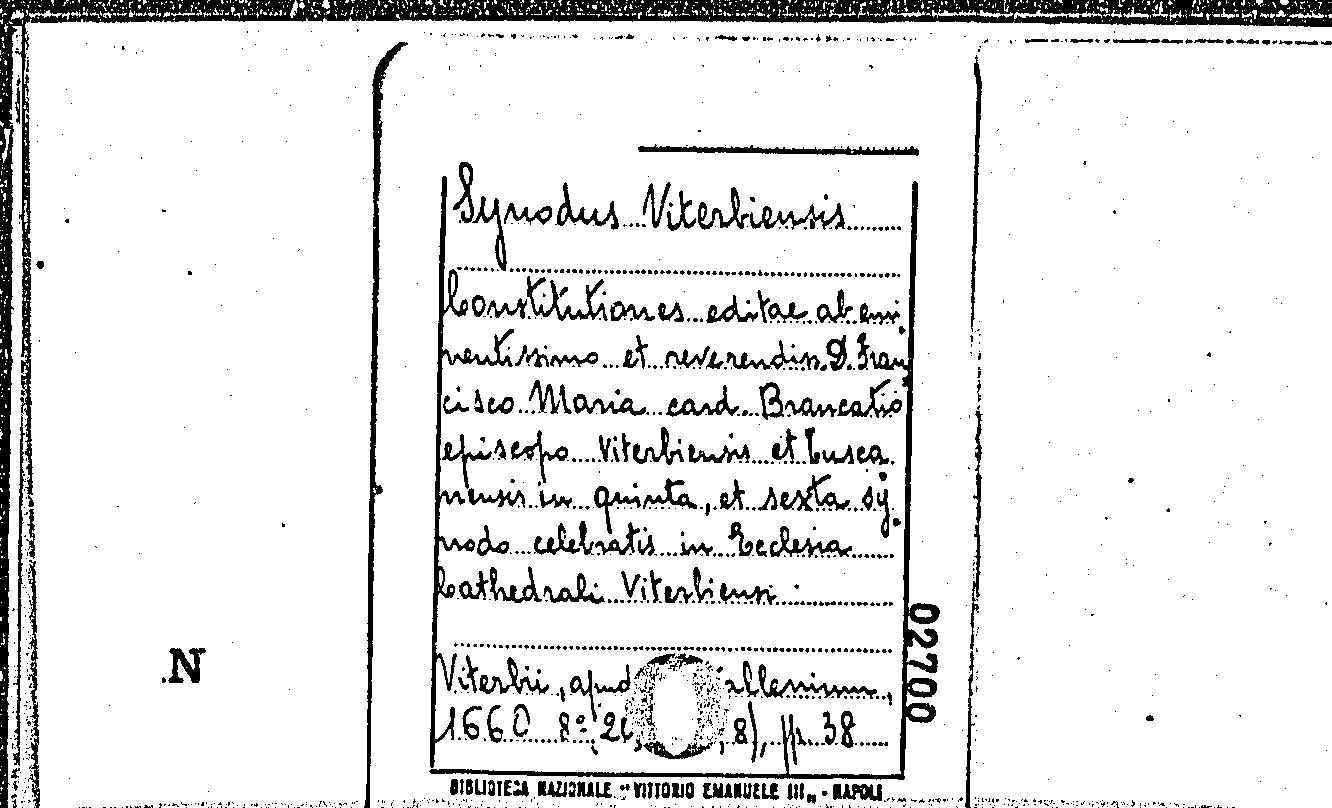 Synodus Viterbiensis
Constitutiones editae ab emi
nentissimo et reverendiss. D. Fran
cisco Maria card. Brancatio
episcopo Viterbiensis et Tusca
nensis in quinta, et sexta sy
nodo celebratis in Ecclesia
Cathedrali Viterbiensi
Viterbii, apud
1660 8º, 8), pp. 38
02700
.N
BIBLIOTECA NAZIONALE "VITTORIO EMANUELE III„ - NAPOLI